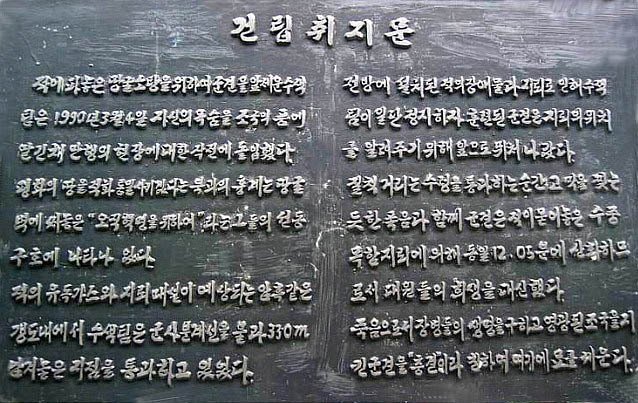 건립취지문
적이 파놓은 땅굴소탕을 위하여 군견을 앞세운 수색
팀은 1990년 3월 4일 자신의 목숨을 조국의 품에
맡긴채 만행의 현장에 대한 작전에 돌입했다.
평화의 땅을 적화 통일시키겠다는 북괴의 흉계는 땅굴
벽에 써놓은 "오직혁명을 위하여" 라는 그들의 선동
구호에 나타나 있다.
적의 유독가스와 지뢰 매설이 예상되는 암흑같은
갱도내에서 수색팀은 군사분계선을 불과 330m
남겨놓은 지점을 통과하고 있었다.
전방에 설치된 적의 장애물과 지뢰로 인하여 수색
팀이 일단 정지하자 훈련된 군견은 지뢰의 위치
를 알려주기 위해 앞으로 뛰쳐 나갔다.
질척거리는 수렁을 통과하는 순간 고막을 찢는
듯한 폭음과 함께 군견은 적이 묻어놓은 수중
목함지뢰에 의해 동일 12. 05분에 산화하므
로서 대원들의 희생을 대신했다.
죽음으로서 장병들의 생명을 구하고 영광된 조국을 지
킨 군견을 "충견"이라 칭하며 여기에 묘를 세운다.